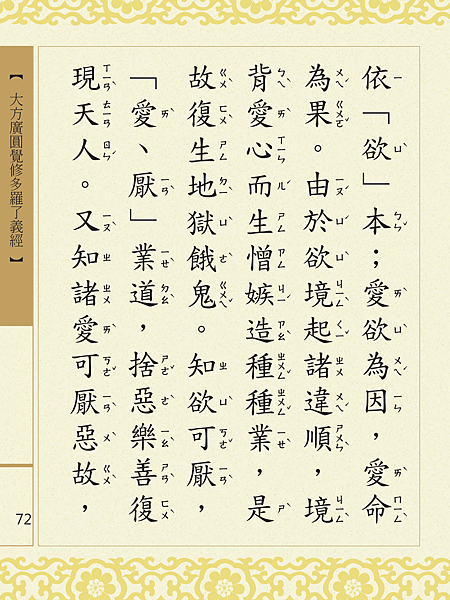 依「欲」本；愛欲為因，愛命
為果。由於欲境起諸違順，境
背愛心而生憎嫉造種種業，是
故復生地獄餓鬼。知欲可厭，
「愛、厭」業道，捨惡樂善復
現天人。又知諸愛可厭惡故，
【 大方廣圓覺修多羅了義經 】
72